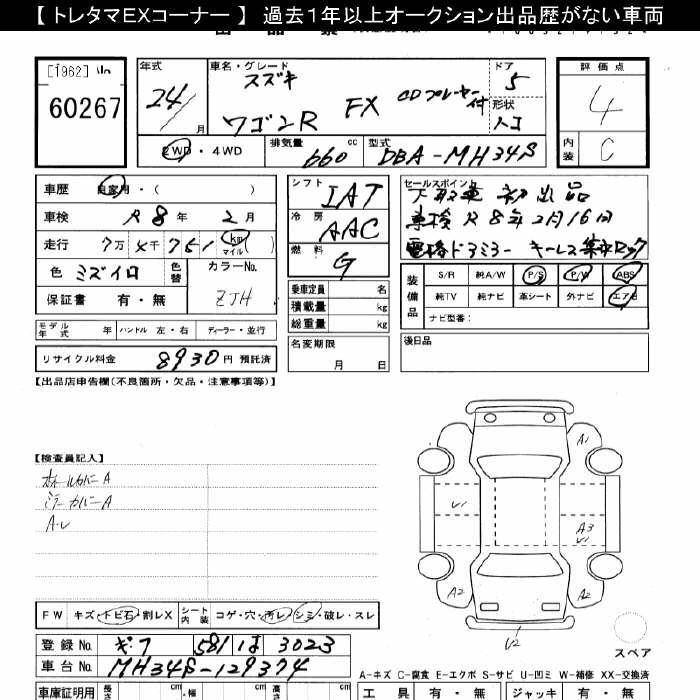 【 トレタマEXコーナー 】 過去１年以上オークション出品歴がない車両
[1962]
60267
年式
24
月
車名・グレード
スズキ
ワゴンR FX CDプレーヤー付
ドア
5
形状
ハコ
評価点
4
内装
C
2WD・4WD
排気量
660 cc
型式
DBA-MH34S
車歴 自家用・( )
車検 R8年 2月
走行 7万 7 5 1 km マイル ( )
色 ミズイロ
色替
カラーNo.
ZJH
保証書 有・無
モデル年式 年 ハンドル 左・右 ディーラー・並行
リサイクル料金 8930 円 預託済
シフト
IAT
冷房
AAC
燃料
G
乗車定員 名
積載量 kg
総重量 kg
名変期限
月 日
セールスポイント
下取車 初出品
車検 R8年2月16日
電格ドアミラー キーレス 集中ロック
装備品
S/R 純A/W P/S P/W ABS
純TV 純ナビ 革シート 外ナビ エアB
ナビ型番：
後日品
【出品店申告欄(不良箇所・欠品・注意事項等)】
【検査員記入】
ホイールカバーA
ミラーカバーA
A・U
A1
U1
A3
U1
A2
A2
U2
スペア
FW キズ・トビ石・割レX
シート内装 コゲ・穴・汚レ・シミ・破レ・スレ
登録No. ギフ 581 は 3023
車台No. MH34S-129374
A-キズ C-腐食 E-エクボ S-サビ U-凹ミ W-補修 XX-交換済
車庫証明用 長さ cm ・幅 cm cm
工具 有・無 ジャッキ 有・無